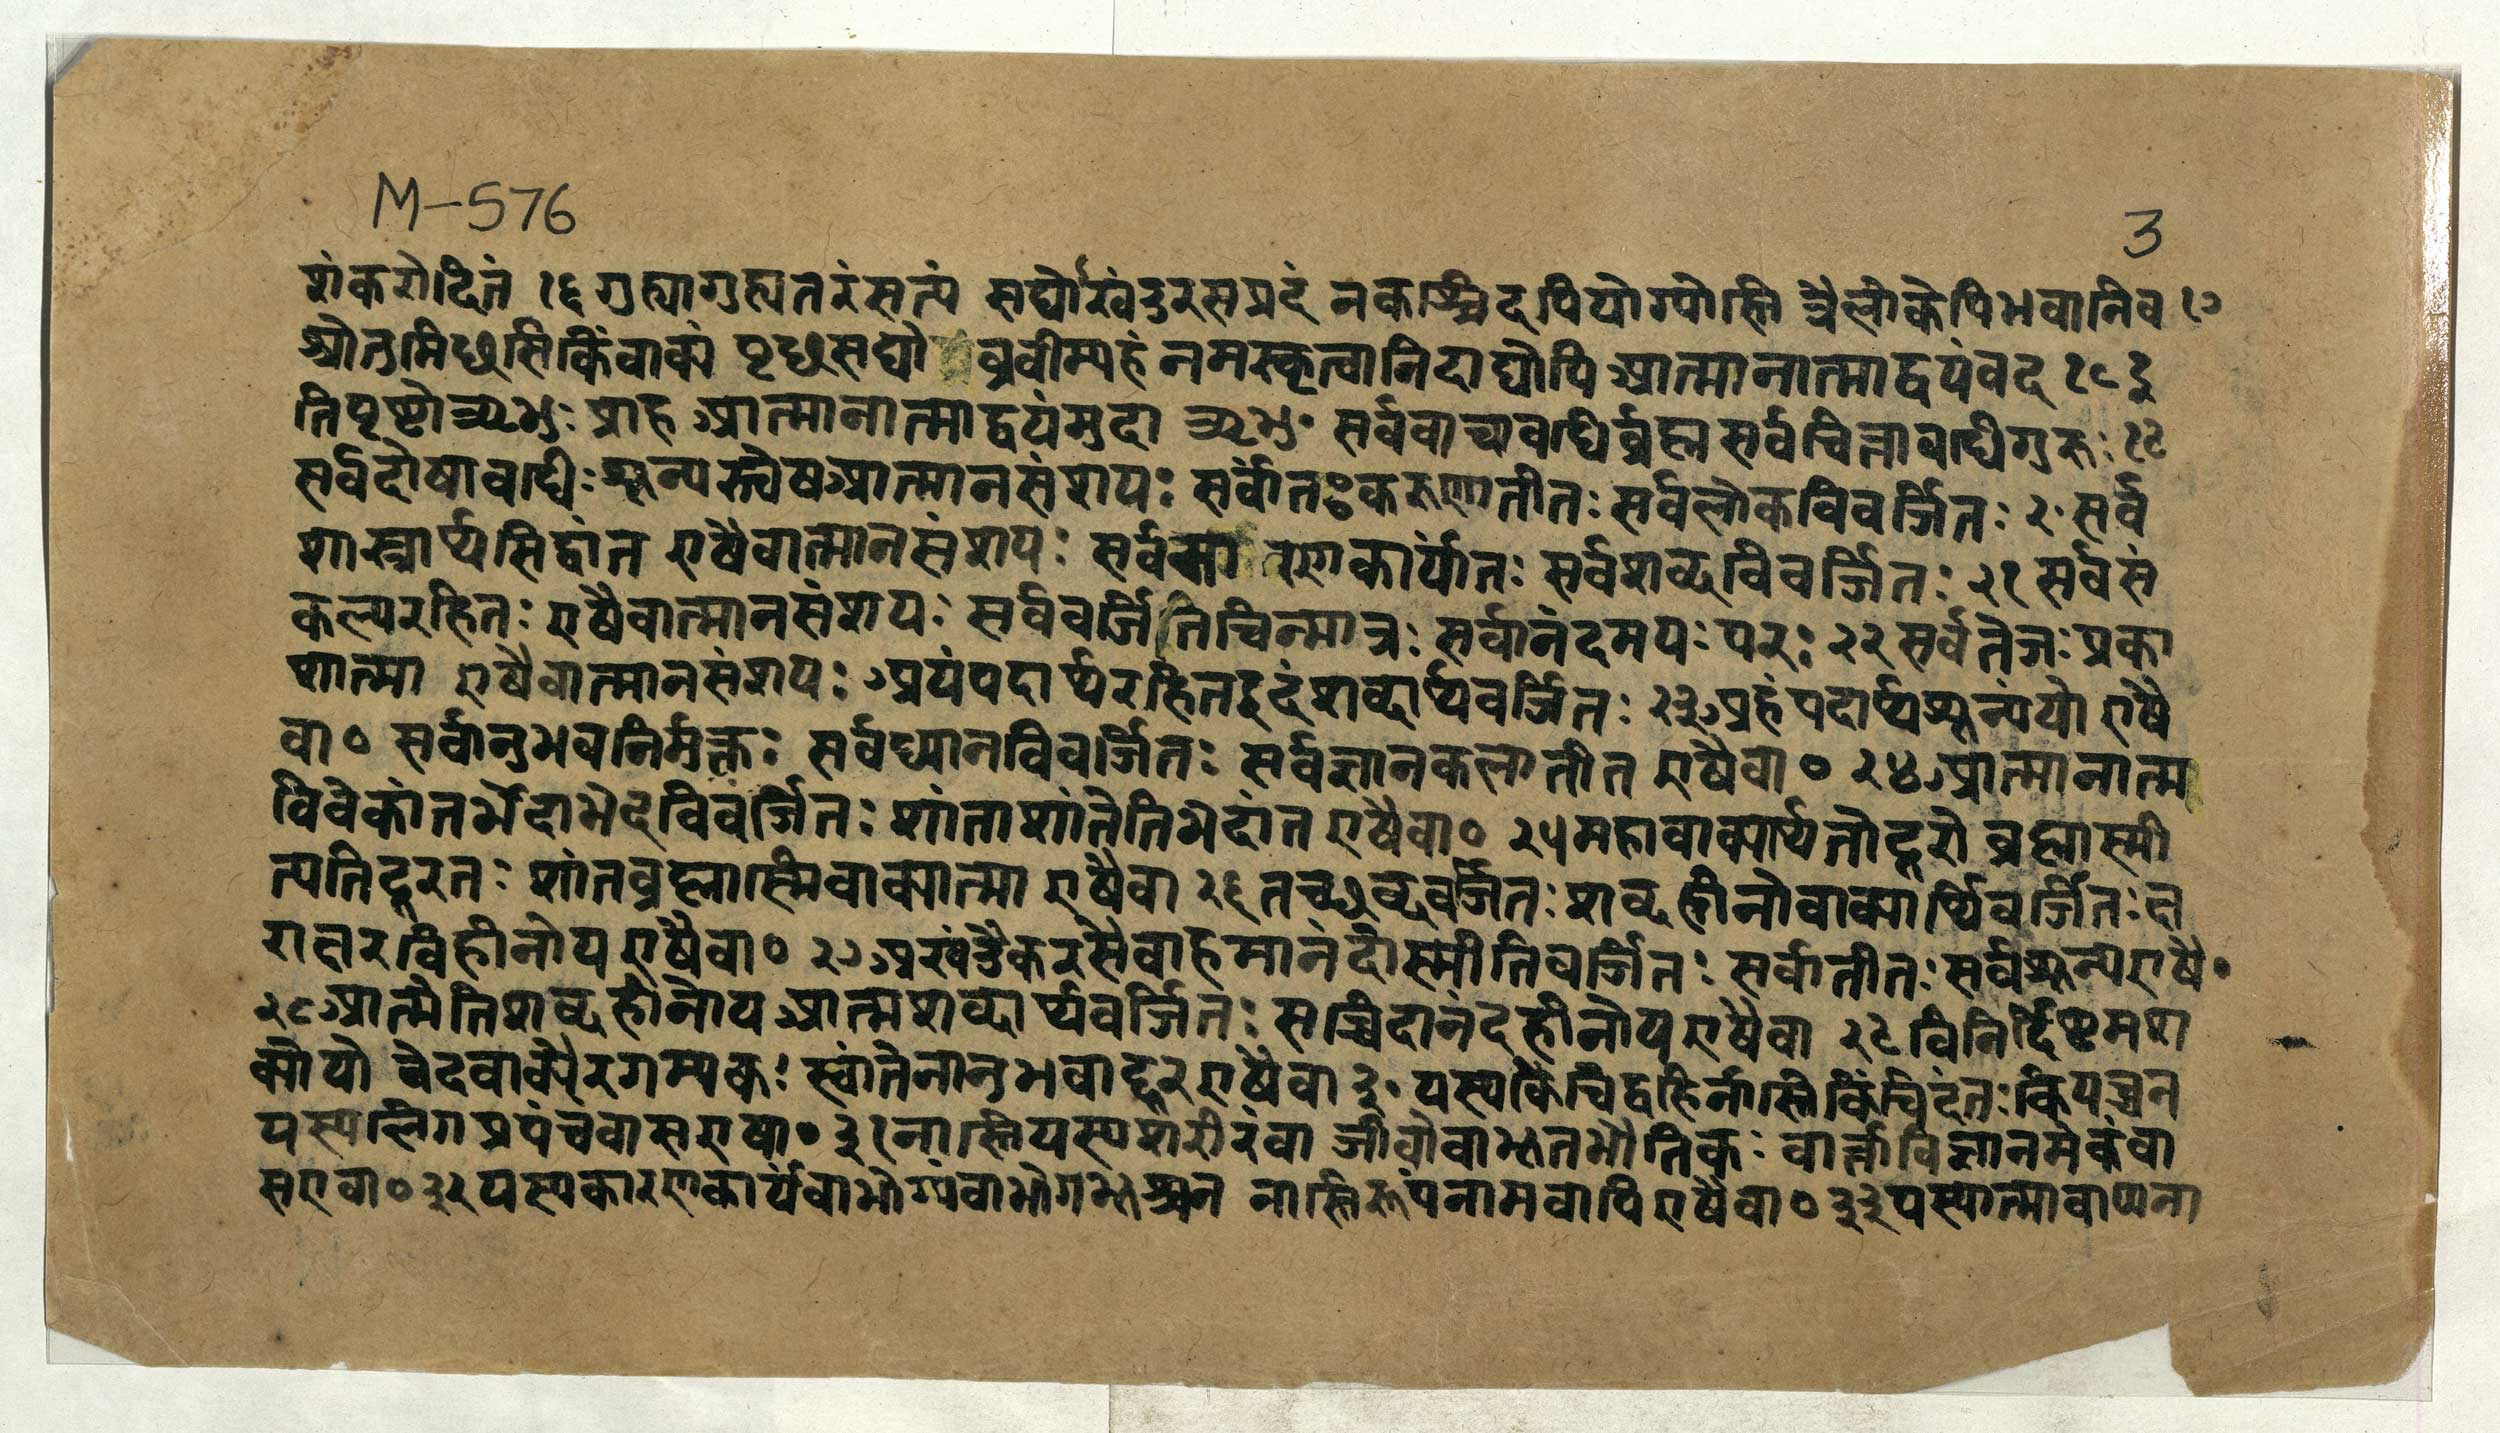 M-576
3
शंकरोदितं १६ गुह्यागुह्यतरं सत्यं सद्योखंडरसप्रदं नकश्चिदपियोग्योस्ति त्रैलोकेपिभवानिव १७
श्रोतुमिछसिकिंवाक्यं पृछसद्यो ब्रवीम्यहं नमस्कृत्वानिदाघोपि आत्मानात्माद्वयंवद १८ इ
तिपृष्टोऋभुः प्राह आत्मानात्माद्वयंमुदा ऋभुः सर्ववाच्यवधिर्ब्रह्म सर्वचिन्तावधीगुरुः १९
सर्वदोषावधीःशून्यस्त्वेषआत्मानसंशयः सर्वांतःकरुणातीतः सर्वलोकविवर्जितः २॰ सर्व
शास्त्रार्थसिद्धांत एषैवात्मानसंशयः सर्व कार्यांतः सर्वशब्दविवर्जितः २१ सर्वसं
कल्परहितः एषैवात्मानसंशयः सर्ववर्जितिचिन्मात्रः सर्वानंदमयः परः २२ सर्वतेजःप्रका
शात्मा एषैवात्मानसंशयः अयंपदार्थरहितइदंशब्दार्थवर्जितः २३ अहंपदार्थशून्यंयो एषै
वा० सर्वानुभवनिर्मुक्तः सर्वध्यानविवर्जितः सर्वज्ञानकलातीत एषैवा० २४ आत्मानात्म
विवेकांतर्भेदाभेदविवर्जितः शांताशांतेतिभेदांत एषैवा० २५ महावाक्यार्थतोदूरो ब्रह्मास्मी
त्यतिदूरतः शांतब्रह्मास्मिवाक्यात्मा एषैवा २६ तच्छब्दवर्जितः शब्दहीनोवाक्यार्थविवर्जितः क्ष
राक्षरविहीनोय एषैवा० २७ अखंडैकरसैवाहमानंदोस्मीतिवर्जितः सर्वातीतः सर्वशून्यएषै॰
२८ आत्मेतिशब्दहीनोय आत्मशब्दार्थवर्जितः सच्चिदानंदहीनोय एषैवा २९ विनिर्द्देष्टुमश
क्योयो वेदवाक्यैरगम्यकः स्वांतेनानुभवाद्दूर एषैवा ३॰ यस्यकिंचिद्बहिर्नास्तिकिंचिदंतःकियन्नन
यस्यलिंगप्रपंचवासएषा॰ ३१ नोस्तियस्यशरीरंवा जीवोवाभूतभौतिकः वार्त्ताविज्ञानमेकंवा
सएवा० ३२ यस्यकारणकार्यंवाभोग्यंवाभोगभूश्चन नास्तिरूपंनामवापि एषैवा० ३३ यस्यात्मावाप्यना